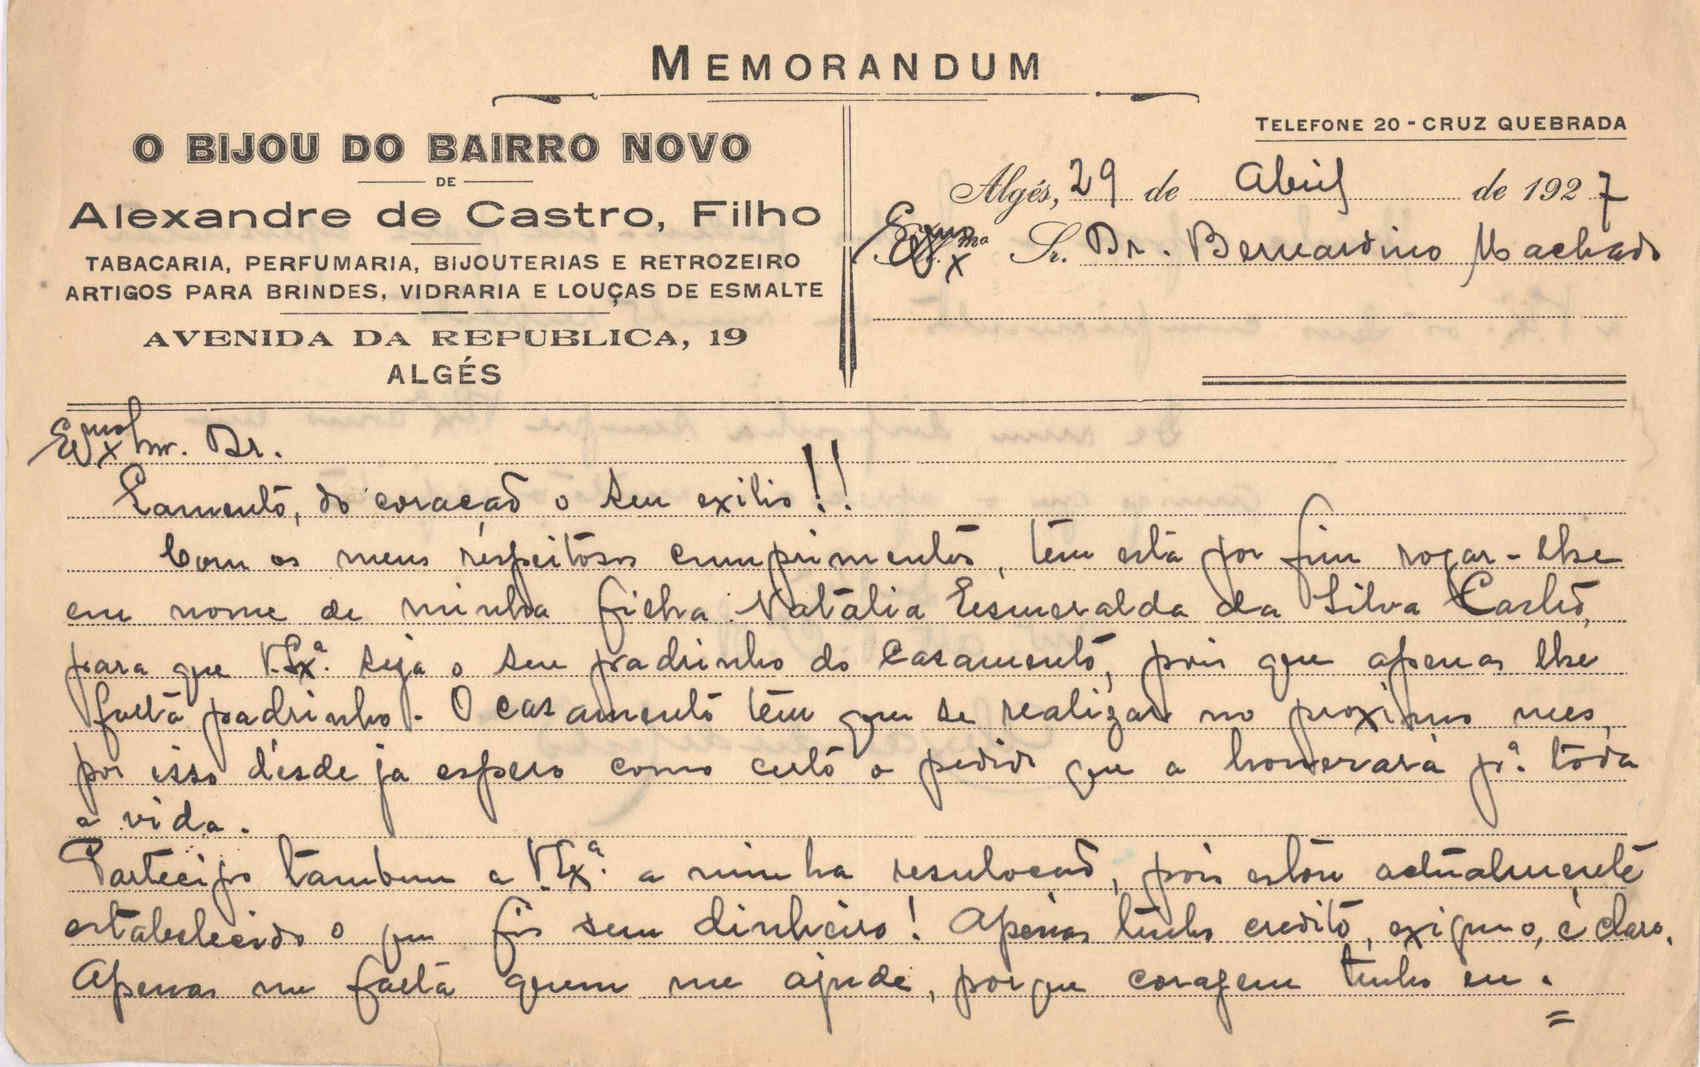 MEMORANDUM
O BIJOU DO BAIRRO NOVO
DE
Alexandre de Castro, Filho
TABACARIA, PERFUMARIA, BIJOUTERIAS E RETROZEIRO
ARTIGOS PARA BRINDES, VIDRARIA E LOUÇAS DE ESMALTE
AVENIDA DA REPUBLICA, 19
ALGÉS
TELEFONE 20 - CRUZ QUEBRADA
Algés, 29 de Abril de 1927
Exmo Sr. Dr. Bernardino Machado
Exmo Snr. Dr.
Lamento, do coração o seu exilio!!
Com os meus respeitosos cumprimentos, tem esta por fim rogar-lhe
em nome de minha filha Natalia Esmeralda da Silva Castro,
para que V. Exª. seja o seu padrinho do casamento, pois que apenas lhe
falta padrinho. O casamento tem que se realizar no proximo mes,
por isso desde ja espero como certo o pedido que a honerará pª. toda
a vida.
Partecipo tambem a V. Exª. a minha resulocão, pois estou actualmente
estabelecido o que fis sem dinheiro! Apenas tenho credito, exiguo, é claro.
Apenas me falta quem me ajude, porque coragem tenho eu.